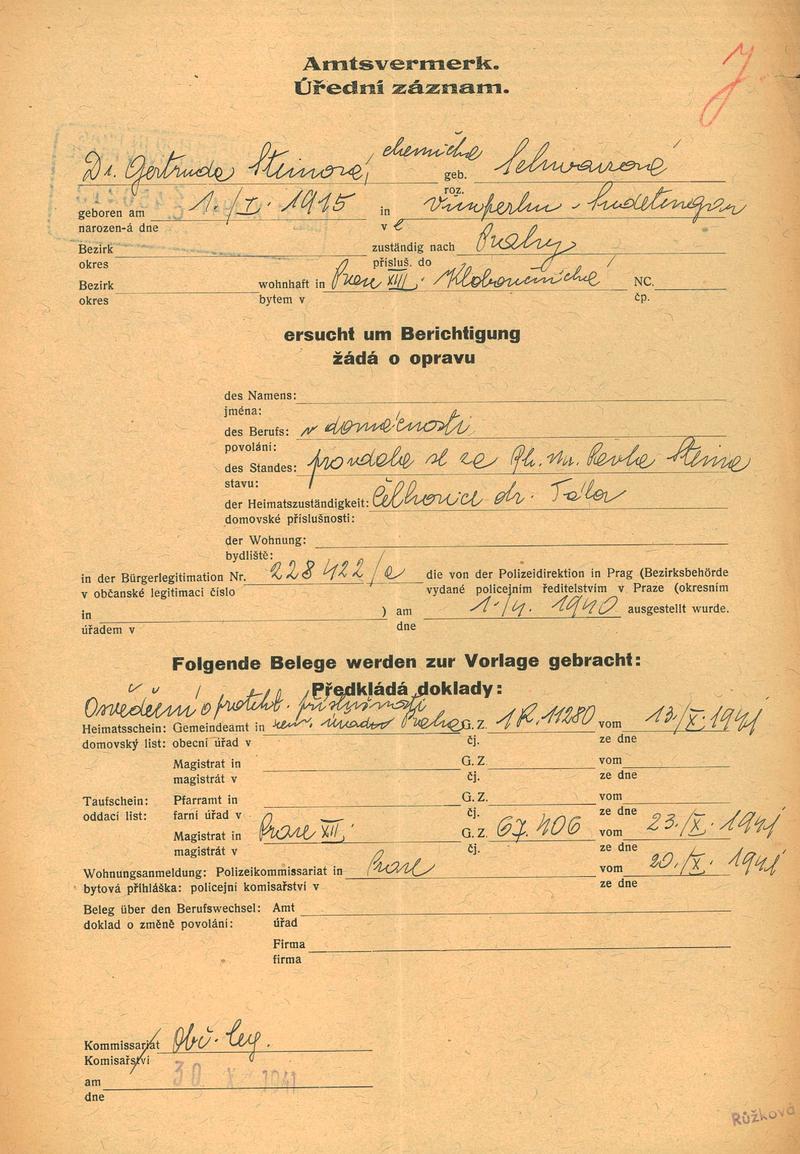 Amtsvermerk.
Úřední záznam.
J
Dr. Gertruda Steinová, chemička geb. Schwarzová
roz.
geboren am 1./I. 1915 in
narozen-á dne v
Bezirk zuständig nach Prahy
okres přísluš. do
Bezirk wohnhaft in Praze XIII. NC.
okres bytem v čp.
ersucht um Berichtigung
žádá o opravu
des Namens:
jména:
des Berufs: v domácnosti
povolání:
des Standes: provdala se za Ph. Mr. Steina
stavu:
der Heimatszuständigkeit: Čelkovice okr. Tábor
domovské příslušnosti:
der Wohnung:
bydliště:
in der Bürgerlegitimation Nr. 228422/ die von der Polizeidirektion in Prag (Bezirksbehörde
v občanské legitimaci číslo vydané policejním ředitelstvím v Praze (okresním
in ) am 1940 ausgestellt wurde.
úřadem v dne
Folgende Belege werden zur Vorlage gebracht:
Předkládá doklady:
Osvědčení o protekt. příslušnosti
Heimatsschein: Gemeindeamt in Praha G. Z. 1R.11280 vom 13/X. 1941
domovský list: obecní úřad v čj. ze dne
Magistrat in G. Z. vom
magistrát v čj. ze dne
Taufschein: Pfarramt in G. Z. vom
oddací list: farní úřad v čj. ze dne
Magistrat in Praze XII. G. Z. 67.406 vom 23./X. 1941
magistrát v čj. ze dne
Wohnungsanmeldung: Polizeikommissariat in Praze vom 20./X. 1941
bytová přihláška: policejní komisařství v ze dne
Beleg über den Berufswechsel: Amt
doklad o změně povolání: úřad
Firma
firma
Kommissariat Obč. leg.
Komisařství
am 30 X 1941
dne
Růžková